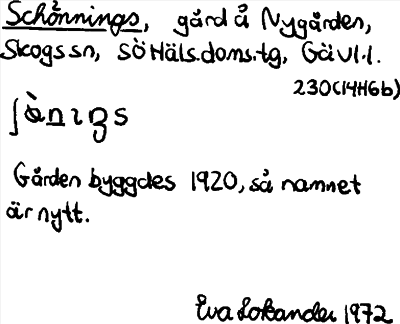 Schönnings, gård å Nygården,
Skogs sn, SöHäls.doms.tg, Gävl.l.
230(14H6b)
Gården byggdes 1920, så namnet
är nytt.
Eva Lokander 1972